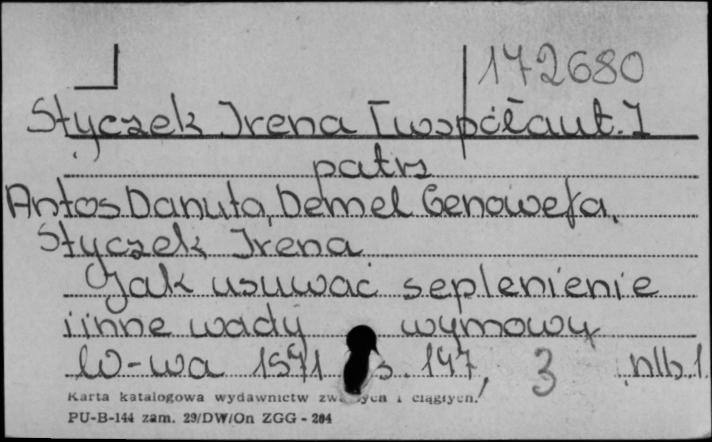 172680
Styczek Irena [współaut.]
patrz
Antos Danuta, Demel Genowefa,
Styczek Irena
Jak usuwać seplenienie
i inne wady wymowy
W-wa 1971 s. 147, 3 nlb.1
Karta katalogowa wydawnictw zwartych i ciągłych.
PU-B-144 zam. 29/DW/On ZGG - 204